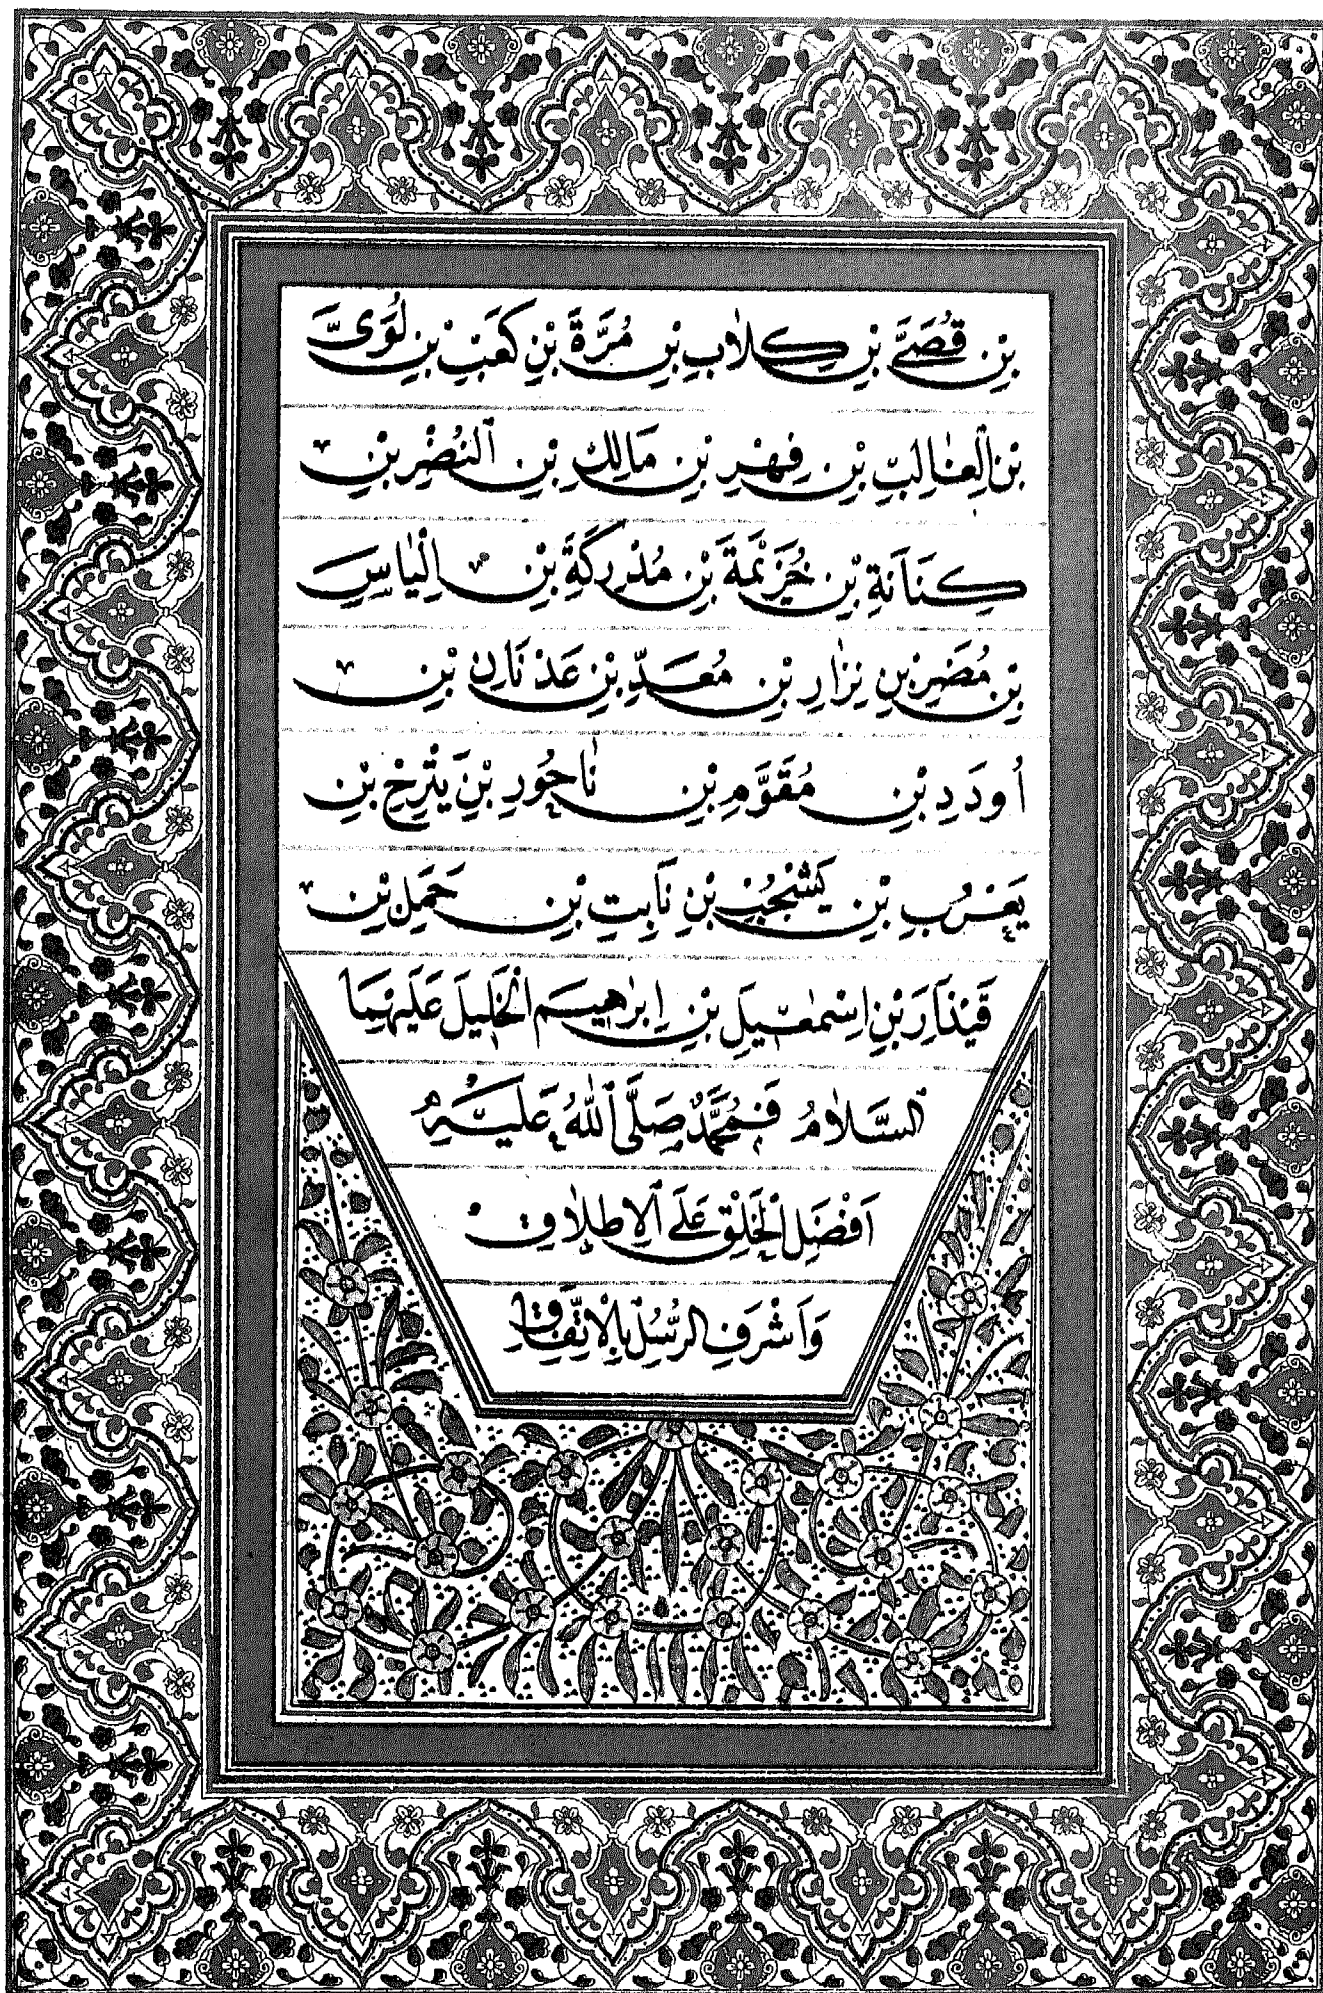 بْنِ قُصَيِّ بْنِ كِلَابِ بْنِ مُرَّةَ بْنِ كَعَبْ بْنِ لُوَىَّ
بْنِ الْغَالِبِّ بْنِ فِهْرِ بْنِ مَالِكِ بْنِ النُضْرِ بْنِ
كِنَانَةِ بْنِ خُزَيْمَةَ بْنِ مُدْرِكَةَ بْنِ اِلْيَاسِ
بْنِ مُضَرِ بْنِ نِزَارِ بْنِ مُعَدِّ بْنِ عَدْنَانِ بْنِ
اُودَدِ بْنِ مُقَوَّمِ بْنِ نَاحُورِ بْنِ يَتْرِخِ بْنِ
يَعْرُبِ بْنِ يَشْجُبْ بْنِ نَابِتِ بْنِ حَمَلِ بْنِ
قَيْذَارَ بْنِ اِسْمٰعِيلِ بْنِ اِبْرٰهِيمَ الْخَلِيلَ عَلَيْهِمَا
السَّلَامُ فَمُحَمَّدٌ صَلَّى اللّٰهُ عَلَيْهِ
اَفْضَلِ الْخَلْقِ عَلَى الْاِطْلَاقِ
وَاَشْرَفِ الرُّسُلِ بِالْاِتِّفَاقِ